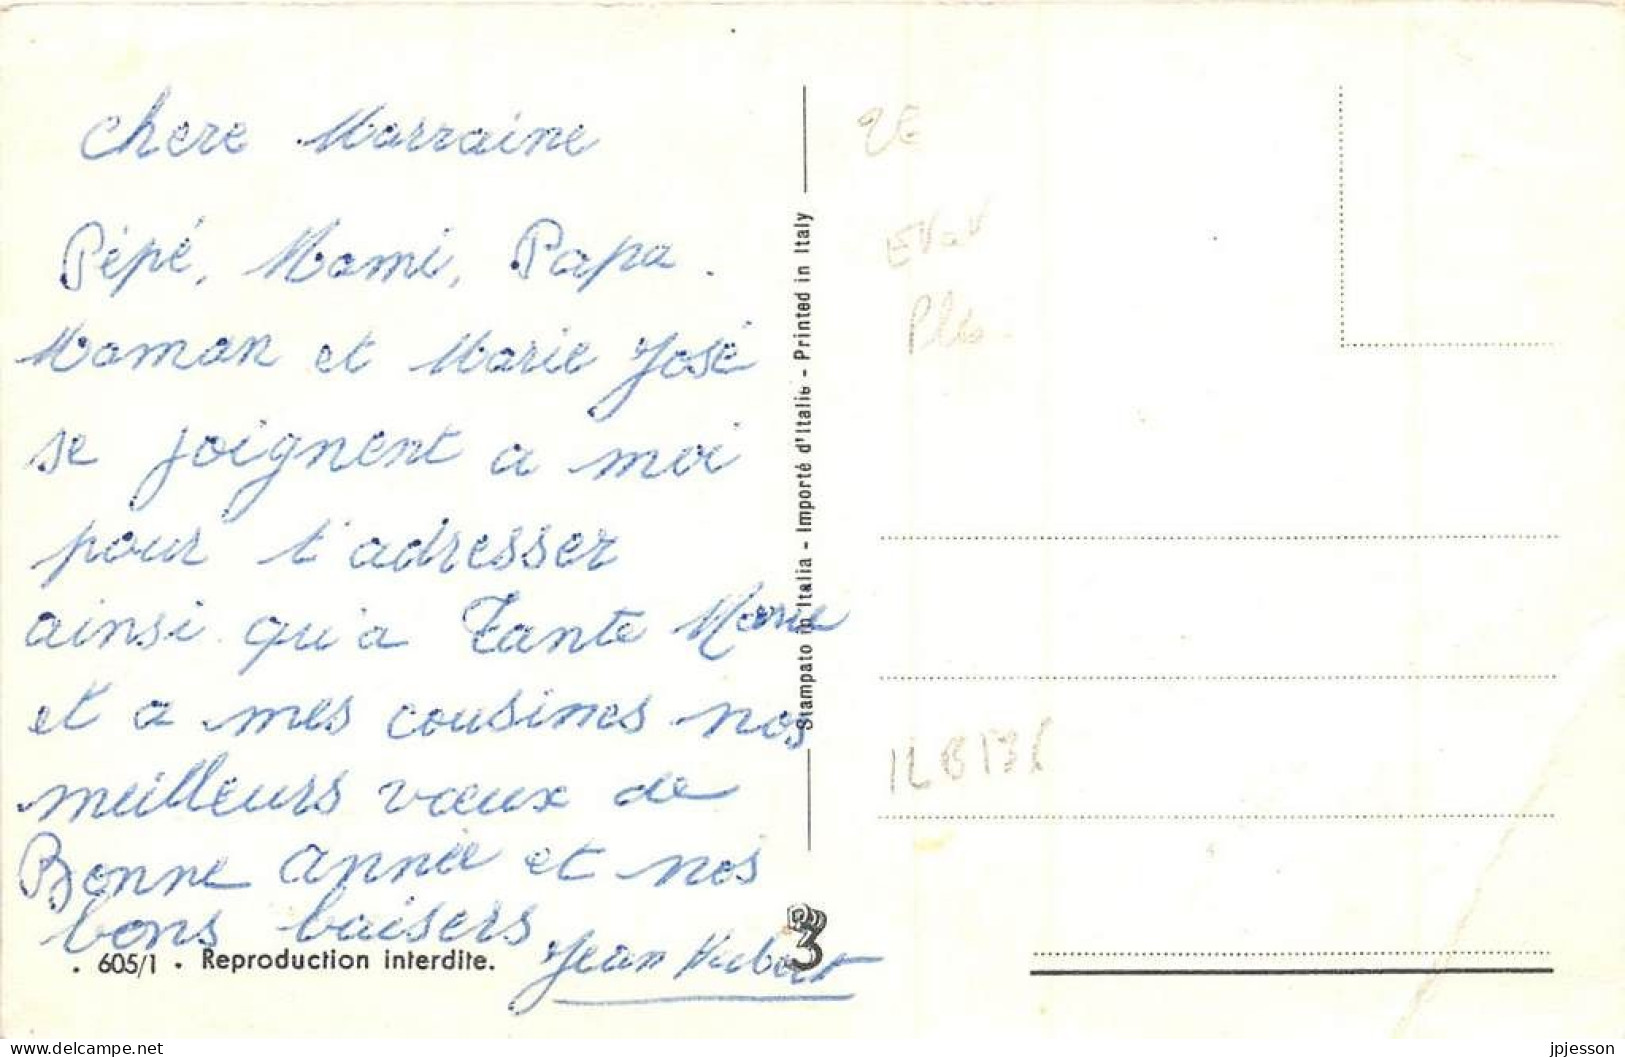 chere Marraine
Pépé, Mami, Papa.
Maman et Marie José
se joignent a moi
pour t'adresser
ainsi qu'a Tante Marie
et a mes cousines nos
meilleurs vœux de
Bonne année et nos
bons baisers
Jean Hubert
. 605/1 . Reproduction interdite.
3
Stampato in Italia - Importé d'Italie - Printed in Italy
2€
delcampe.net
jpjesson